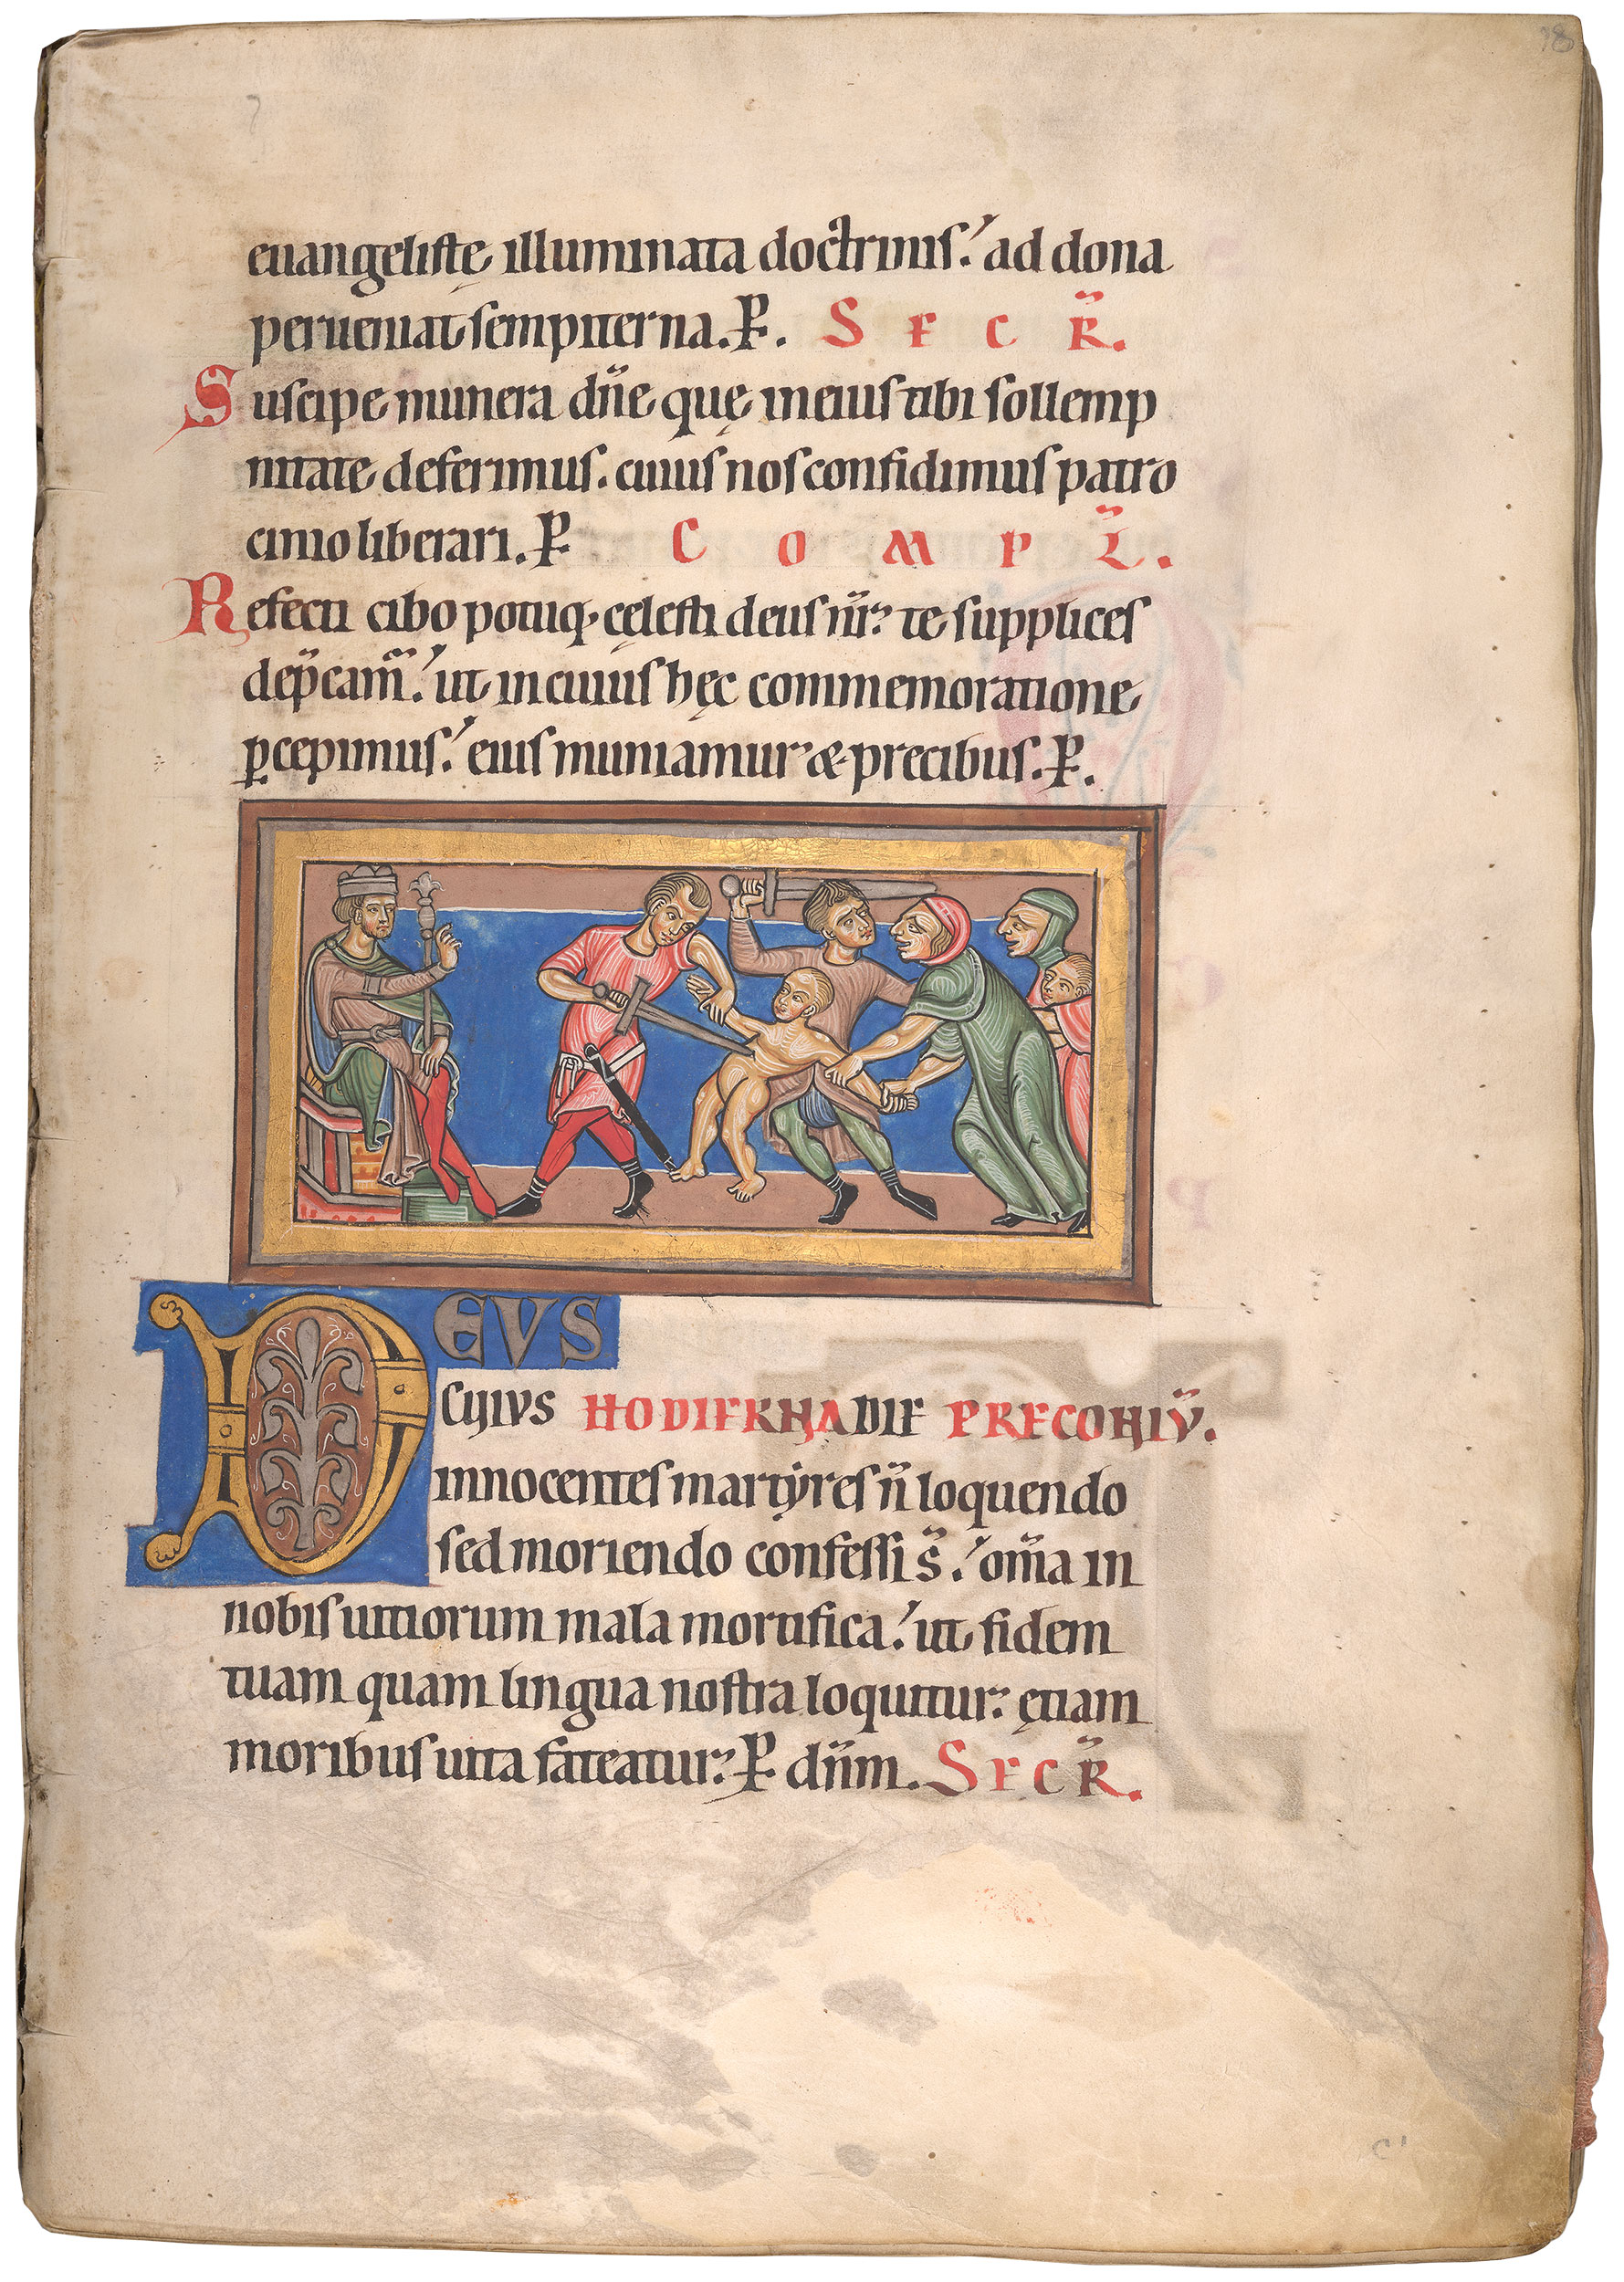 18
euangeliste̜ illuminata doctrinis. ad dona
perueniat sempiterna. P. SECR̄.
Suscipe munera dn̄e que̜ in eius tibi sollemp
nitate deferimus. cuius nos confidimus patro
cinio liberari. P. COMPL̄.
Refecti cibo potuq; ce̜lesti deus nr̄ te supplices
dep̄cam̄. ut in cuius he̜c commemoratione
ꝑcepimus. eius muniamur & precibus. P.
DEVS
CUIVS HODIERNA DIE PRECONIV̄.
innocentes martyres n̄ loquendo
sed moriendo confessi s̄. om̄a in
nobis uitiorum mala mortifica. ut fidem
tuam quam lingua nostra loquitur. e̜tiam
moribus uita fateatur. P. dn̄m. SECR̄.